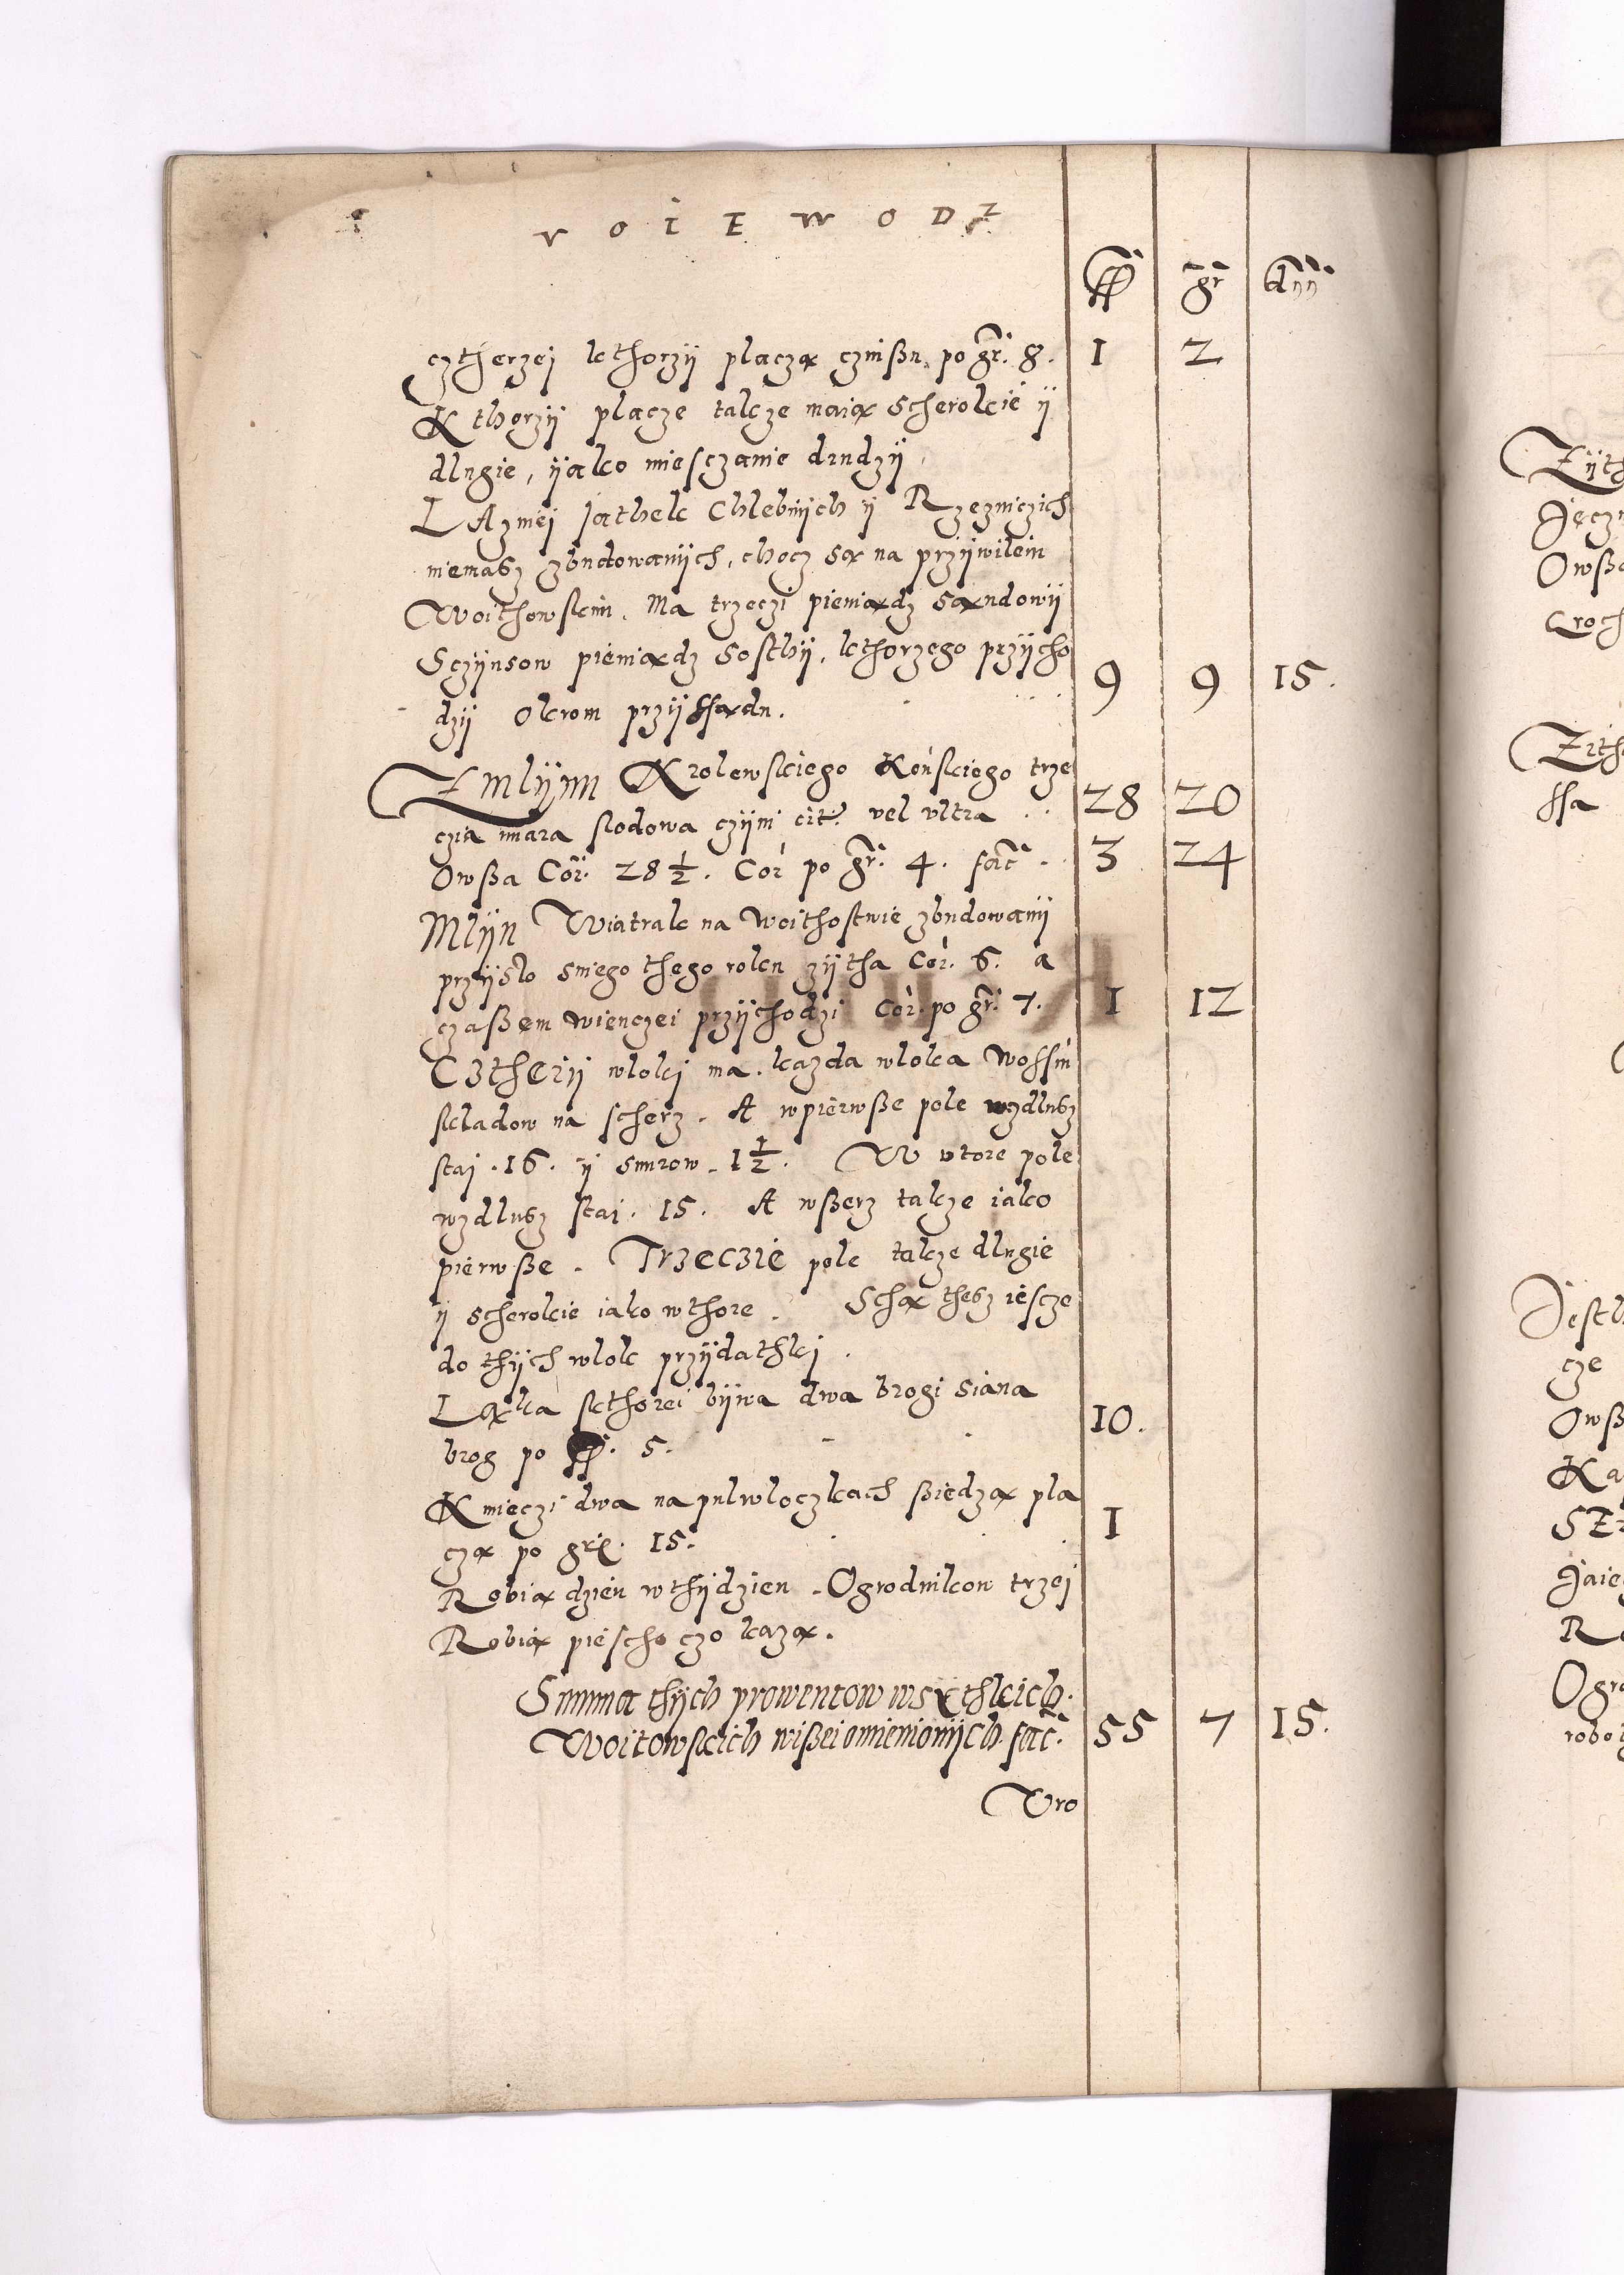 VOIEWODZ
fl gr dnn
cztherzej kthorzÿ płaczą czinßu po gr. 8. 1 2
Kthorzÿ płacze takze maią scherokie ÿ
dlugie, ÿako miesczanie drudzÿ.
LAzniej jathek Chlebnÿch ÿ Rzezniczich
niemasz zbudowanÿch, chocz są na przÿwileiu
Woithowskim. Ma trzeczi pieniądz sąndowÿ
Sczÿnsow pieniądz Sosthÿ, kthorzego przÿcho
dzÿ okrom przÿssądu. 9 9 15.
Zmlÿnu Krolewskiego Końskiego trze
czia miara słodowa czÿni cit. vel vltra 28 20
Owßa Cor. 28 1/2. Cor po gr. 4. fac. 3 24
Mlÿn Wiatrak na Woithostwie zbudowanÿ
przÿszło sniego thego roku zÿtha Cor. 6. a
czaßem wienczei przÿchodzi Cor. po gr. 7. 1 12
Cztherÿ wlokj ma. kazda wloka Wossm
składow na scherz. A wpierwße pole wzdlusz
staj. 16. ÿ snurow. 1 1/2. W vtore pole
wzdlusz staj. 15. A wßerz takze iako
pierwße. Trzeczie pole takze dlugie
ÿ scherokie iako wthore. Schą thesz iescze
do thÿch wlok przÿdathkj.
Ląka skthorei bÿwa dwa brogi siana
brog po fl. 5. 10.
Kmieczi dwa na pulwloczkach ßiedzą pla
czą po grß. 15. 1
Robią dzien wthÿdzien. Ogrodnikow trzej
Robią piescho czo kazą.
Summa thÿch prowentow wsÿthkich.
Woitowskich wißei omienionÿch. fac. 55 7 15.
Vro